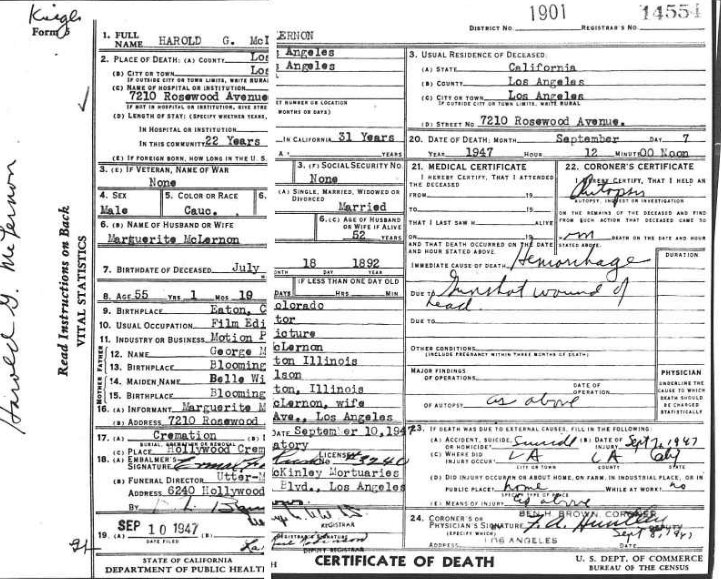 1901
14554
DISTRICT No.
REGISTRAR'S No.
Form
1. FULL NAME HAROLD G. McLERNON
2. PLACE OF DEATH: (A) COUNTY Los Angeles
(B) CITY OR TOWN Los Angeles
IF OUTSIDE CITY OR TOWN LIMITS, WRITE RURAL
(C) NAME OF HOSPITAL OR INSTITUTION
7210 Rosewood Avenue
IF NOT IN HOSPITAL OR INSTITUTION, GIVE STREET NUMBER OR LOCATION
(D) LENGTH OF STAY: (SPECIFY WHETHER YEARS, MONTHS OR DAYS)
IN HOSPITAL OR INSTITUTION
IN THIS COMMUNITY 22 Years IN CALIFORNIA 31 Years
(E) IF FOREIGN BORN, HOW LONG IN THE U. S. A? YEARS
3. (E) IF VETERAN, NAME OF WAR
None
3. (F) SOCIAL SECURITY No.
None
4. SEX
Male
5. COLOR OR RACE
Cauc.
6. (A) SINGLE, MARRIED, WIDOWED OR DIVORCED
Married
6. (B) NAME OF HUSBAND OR WIFE
Marguerite McLernon
6. (C) AGE OF HUSBAND OR WIFE IF ALIVE
52 YEARS
7. BIRTHDATE OF DECEASED July 18 1892
MONTH DAY YEAR
8. AGE 55 YRS 1 MOS 19 DAYS
IF LESS THAN ONE DAY OLD
HRS MIN
9. BIRTHPLACE Eaton, Colorado
10. USUAL OCCUPATION Film Editor
11. INDUSTRY OR BUSINESS Motion Picture
FATHER
12. NAME George McLernon
13. BIRTHPLACE Bloomington Illinois
MOTHER
14. MAIDEN NAME Belle Wilson
15. BIRTHPLACE Bloomington, Illinois
16. (A) INFORMANT Marguerite McLernon, wife
(B) ADDRESS 7210 Rosewood Ave., Los Angeles
17. (A) Cremation (B) DATE September 10, 1947
BURIAL, CREMATION OR REMOVAL
(C) PLACE Hollywood Crematory
18. (A) EMBALMER'S SIGNATURE LICENSE No. 3240
(B) FUNERAL DIRECTOR Utter-McKinley Mortuaries
ADDRESS 6240 Hollywood Blvd., Los Angeles
BY
19. (A) SEP 10 1947
DATE FILED
REGISTRAR
REGISTRAR'S SIGNATURE
DEPUTY REGISTRAR
3. USUAL RESIDENCE OF DECEASED:
(A) STATE California
(B) COUNTY Los Angeles
(C) CITY OR TOWN Los Angeles
IF OUTSIDE CITY OR TOWN LIMITS, WRITE RURAL
(D) STREET No 7210 Rosewood Avenue.
20. DATE OF DEATH: MONTH September DAY 7
YEAR 1947 HOUR 12 MINUTE 00 Noon
21. MEDICAL CERTIFICATE
I HEREBY CERTIFY, THAT I ATTENDED THE DECEASED
FROM 19
TO 19
THAT I LAST SAW H ALIVE
ON 19
AND THAT DEATH OCCURRED ON THE DATE AND HOUR STATED ABOVE.
22. CORONER'S CERTIFICATE
I HEREBY CERTIFY, THAT I HELD AN
Autopsy
AUTOPSY, INQUEST OR INVESTIGATION
ON THE REMAINS OF THE DECEASED AND FIND FROM SUCH ACTION THAT DECEASED CAME TO
DEATH ON THE DATE AND HOUR STATED ABOVE.
IMMEDIATE CAUSE OF DEATH Hemorrhage
DURATION
DUE TO Gunshot wound of head
DUE TO
OTHER CONDITIONS
(INCLUDE PREGNANCY WITHIN THREE MONTHS OF DEATH)
MAJOR FINDINGS
OF OPERATIONS
DATE OF OPERATION
OF AUTOPSY as above
PHYSICIAN
UNDERLINE THE CAUSE TO WHICH DEATH SHOULD BE CHARGED STATISTICALLY
23. IF DEATH WAS DUE TO EXTERNAL CAUSES, FILL IN THE FOLLOWING:
(A) ACCIDENT, SUICIDE, OR HOMICIDE? Suicide (B) DATE OF INJURY Sept 7, 1947
(C) WHERE DID INJURY OCCUR? LA LA Caly
CITY OR TOWN COUNTY STATE
(D) DID INJURY OCCUR IN OR ABOUT HOME, ON FARM, IN INDUSTRIAL PLACE, OR IN PUBLIC PLACE? home WHILE AT WORK? no
SPECIFY TYPE OF PLACE
(E) MEANS OF INJURY As above
BEN H. BROWN, CORONER
24. CORONER'S OR PHYSICIAN'S SIGNATURE
(SPECIFY WHICH)
DEPUTY
ADDRESS LOS ANGELES DATE Sept 8, 1947
STATE OF CALIFORNIA
DEPARTMENT OF PUBLIC HEALTH
CERTIFICATE OF DEATH
U. S. DEPT. OF COMMERCE
BUREAU OF THE CENSUS
Read Instructions on Back
VITAL STATISTICS
Harold G. McLernon